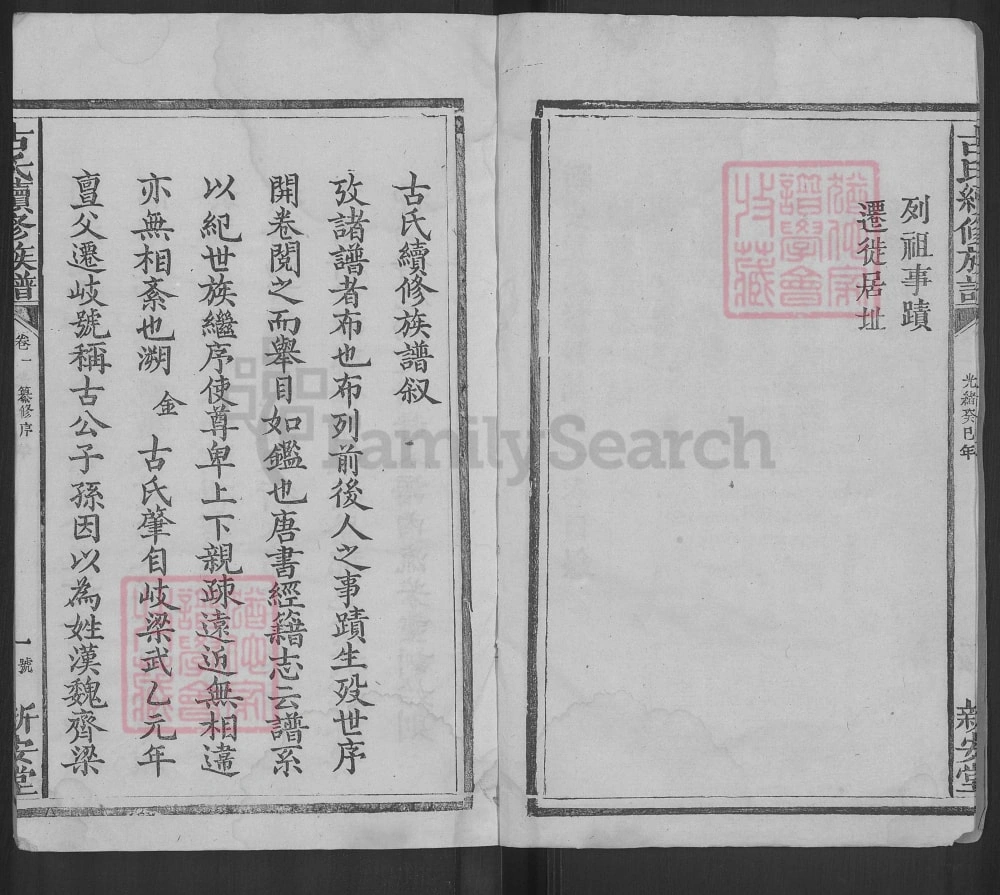 古氏續修族譜
光緒癸巳年
新安堂
列祖事蹟
遷徙居址
古氏續修族譜叙
攷諸譜者布也布列前後人之事蹟生殁世序
開卷閱之而舉目如鑑也唐書經籍志云譜系
以紀世族繼序使尊卑上下親疎遠近無相違
亦無相紊也溯 金 古氏肇自岐梁武乙元年
亶父遷岐號稱古公子孫因以為姓漢魏齊梁
古氏續修族譜
卷一
纂修序
一號
新安堂
FamilySearch